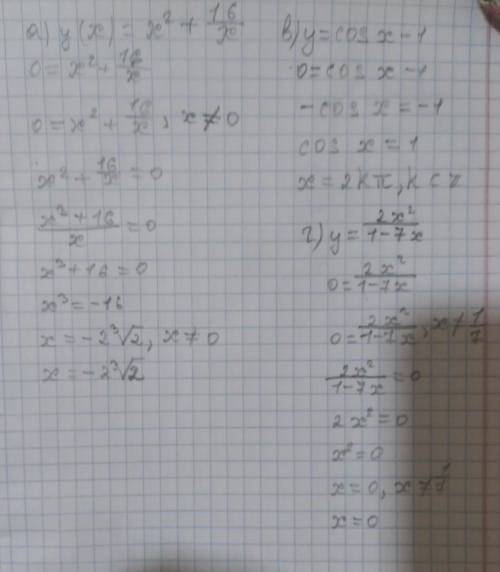 а) y(x) = x² + 16/x
0 = x² + 16/x
0 = x² + 16/x, x ≠ 0
x² + 16/x = 0
x³ + 16/x = 0
x³ + 16 = 0
x³ = -16
x = -2³√2, x ≠ 0
x = -2³√2
в) y = cos x - 1
0 = cos x - 1
-cos x = -1
cos x = 1
x = 2kπ, k ∈ z
г) y = 2x²/1-7x
0 = 2x²/1-7x
0 = 2x²/1-7x, x ≠ 1/7
2x²/1-7x = 0
2x² = 0
x² = 0
x = 0, x ≠ 1/7
x = 0